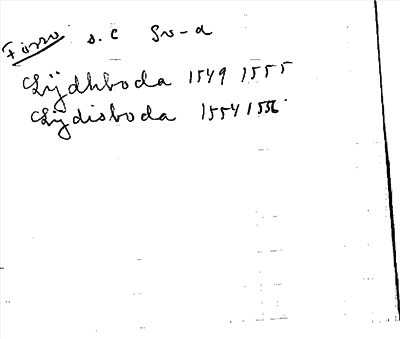 Förso s. c Sv-a
Lÿdhboda 1549 1555
Lÿdisboda 1554 1556